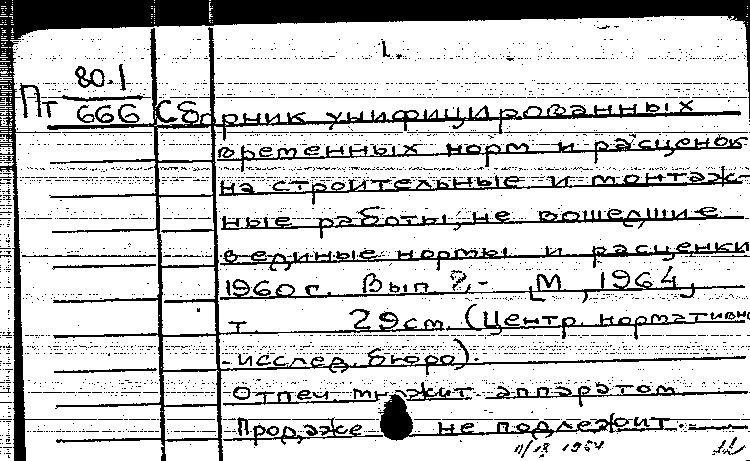 1.
Пт 80.1
666 Сборник унифицированных
временных норм и расценок
на строительные и монтаж-
ные работы, не вошедшие
в единые нормы и расценки
1960 г. Вып. 2.- [М, 1964,
т. 29 см. (Центр. нормативно
-исслед. бюро).
Отпеч. множит аппаратом
Продаже не подлежит.